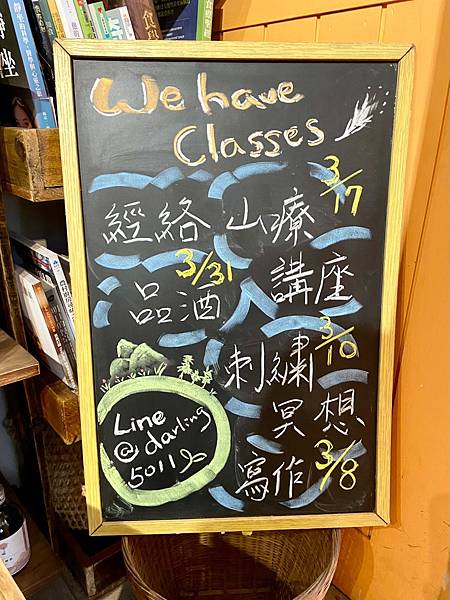 We have
Classes
3/17
經絡 山療
3/31
品酒 講座
3/10
刺繡
冥想
3/8
寫作
Line
@darling
5011